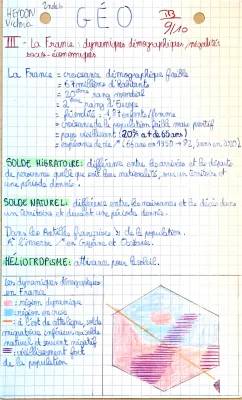 HEYDON
Victoria
2nde6
GÉO
9/10
III - La France : dynamiques démographiques, inégalités
socio-économiques
La France = croissance démographique faible
= 67 millions d'habitants
rang mondial
= 2ème rang d'Europe
= fécondité : enfants/femme
= croissance de la population faible mais positif
= pays vieillissant : (20% a + de 65 ans)
= espérance de vie ↗ (66 ans en 1950 → 82,5 ans en 2020)
SOLDE MIGRATOIRE : différence entre les arrivées et les départs
de personnes quelle que soit leur nationalité, sur un territoire et
une période donnée.
SOLDE NATUREL : différence entre les naissances et les décès dans
un territoire et durant une période donnée.
Dans les Antilles françaises : ↘ de la population.
À l'inverse ↗ en Guyane et Océanie.
HÉLIOTROPISME : attirance pour le soleil.
Les dynamiques démographiques
en France
: région dynamique
: région en crise
: à l'est de cette ligne, solde
migratoire inférieur au solde
naturel et souvent négatif
: vieillissement fort
de la population